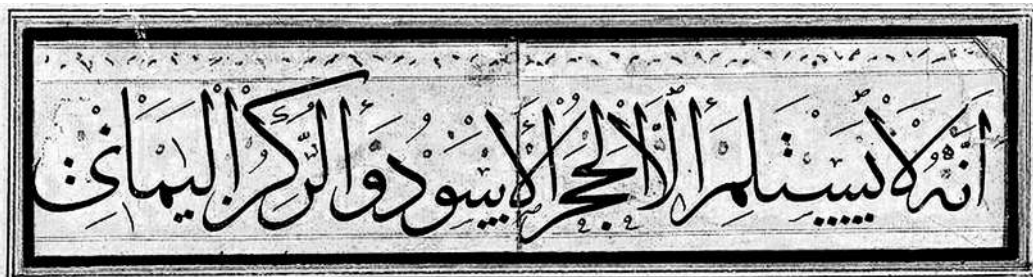 اَنَّهُ لَا يَسْتَلِمُ اِلَّا الْحَجَرَ الْاَسْوَدَ وَالرُّكْنَ الْيَمَانِيَ